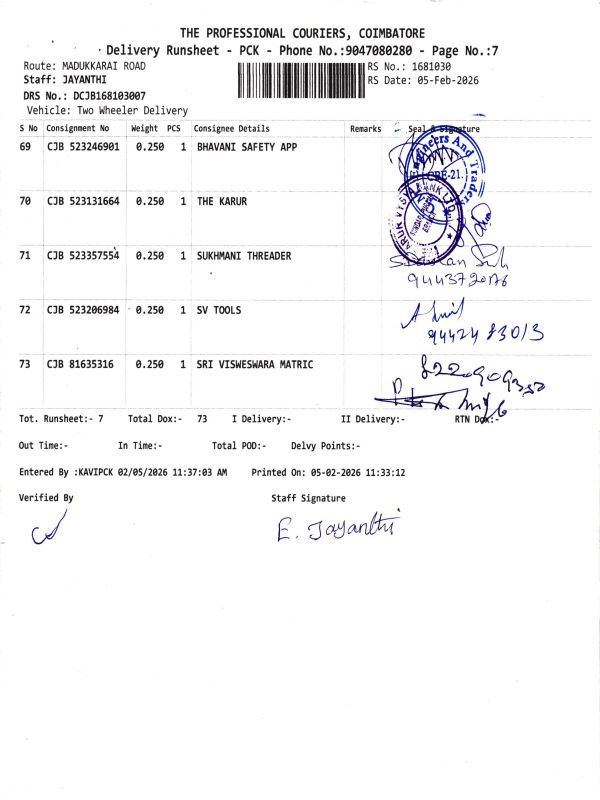 THE PROFESSIONAL COURIERS, COIMBATORE
Delivery Runsheet - PCK - Phone No.:9047080280 - Page No.:7
Route: MADUKKARAI ROAD
RS No.: 1681030
Staff: JAYANTHI
RS Date: 05-Feb-2026
DRS No.: DCJB168103007
Vehicle: Two Wheeler Delivery
S No Consignment No Weight PCS Consignee Details Remarks Seal & Signature
69 CJB 523246901 0.250 1 BHAVANI SAFETY APP
Engineers And Traders
CBE-21.
70 CJB 523131664 0.250 1 THE KARUR
71 CJB 523357554 0.250 1 SUKHMANI THREADER
9443720176
72 CJB 523206984 0.250 1 SV TOOLS
94424 83013
73 CJB 81635316 0.250 1 SRI VISWESWARA MATRIC
Tot. Runsheet:- 7 Total Dox:- 73 I Delivery:- II Delivery:- RTN Dox:-
Out Time:- In Time:- Total POD:- Delvy Points:-
Entered By :KAVIPCK 02/05/2026 11:37:03 AM Printed On: 05-02-2026 11:33:12
Verified By Staff Signature
E. Jayanthi